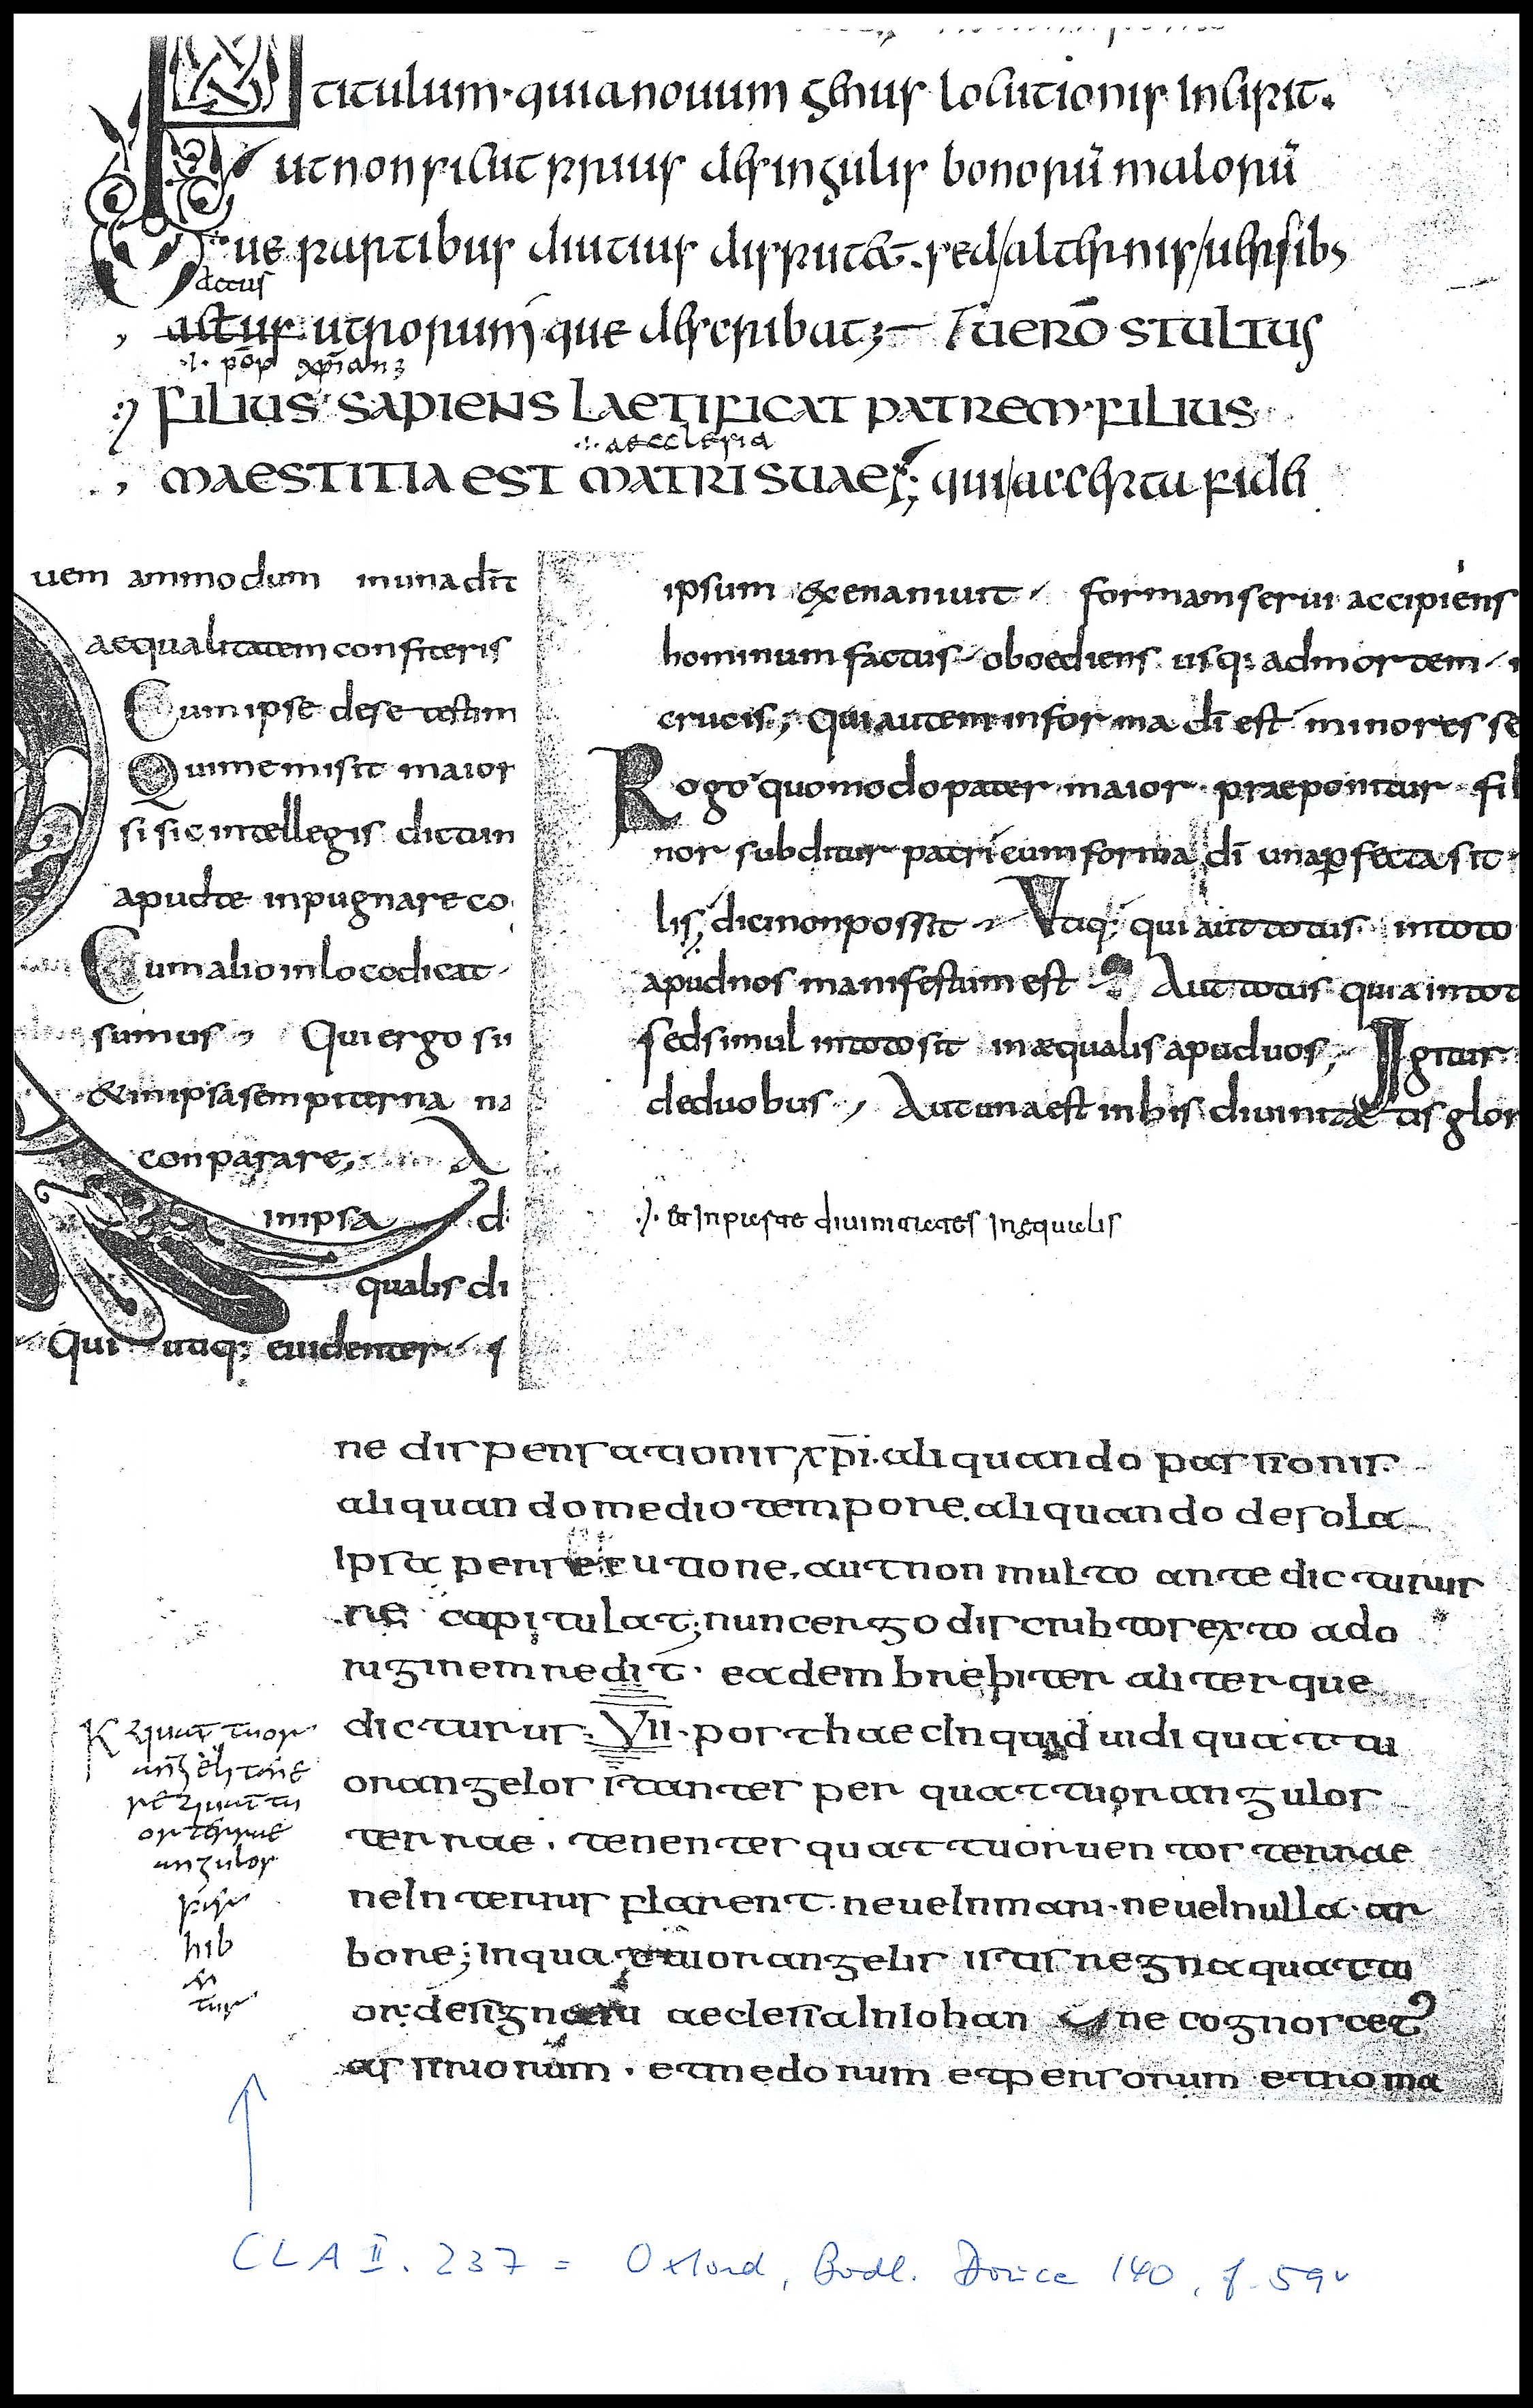 titulum · quia nouum genus locutionis incipit.
ut non sicut prius de singulis bonorū malorū
que partibus diutius disputet. sed alternis uersib;
actus
actus utrorumque describat; Uero stultus
.i. pōp xp̄ian;
filius sapiens laetificat patrem · filius
.i. aecclesia
maestitia est matri suae; qui accepta fidei
uem ammodum in una dīt
aequalitatem confiteris
Cum ipse de se testim
Qui me misit maior
si sic intellegis dictum
apud te inpugnare co
Cum alio in loco dicat
sumus , Qui ergo su
& in ipsa sempiterna na
conparare, A
in ipsa d
qualis di
Qui utiq; euidenter s
ipsum exenaniuit formam serui accipiens
hominum factus oboediens usq; ad mortem
crucis; Qui autem in forma dī est minores se
Rogo quomodo pater maior praeponitur fil
nor subditur patri cum forma dī una perfecta sit
lis, dici non possit Utiq; qui aut totus in toto
apud nos manifestum est Aut totus qui a in tot
sed simul in toto sit inaequalis apud uos; Igitur
de duobus , Aut una est in his diuinitatis glor
./. & in prestate diuinitates inequalis
ne dispensationis xp̄i. aliquando passionis.
aliquando medio tempore. aliquando de sola
ipsa persecutione. aut non multo ante dicturus
re capitulat; nunc ergo discrubtor exto ad o
riginem redit · eadem breþiter aliterque
dicturus. VII · post haec inquid uidi quattu
or angelos stanter per quattuor angulos
terrae . tenentes quattuor uentos terrae
ne in terris flarent. neue in mari · neue in nulla · ar
bore; in quattuor angelis istis regna quattu
or. designatu aeclesia in iohan ne cognoscet
assiriorum . et medorum et persorum et roma
K quat tuor
angeli tene
re quat tu
or terrae
angulos
scri
hib
n
tur
CLA II. 237 = Oxford, Bodl. Douce 140, f. 59v